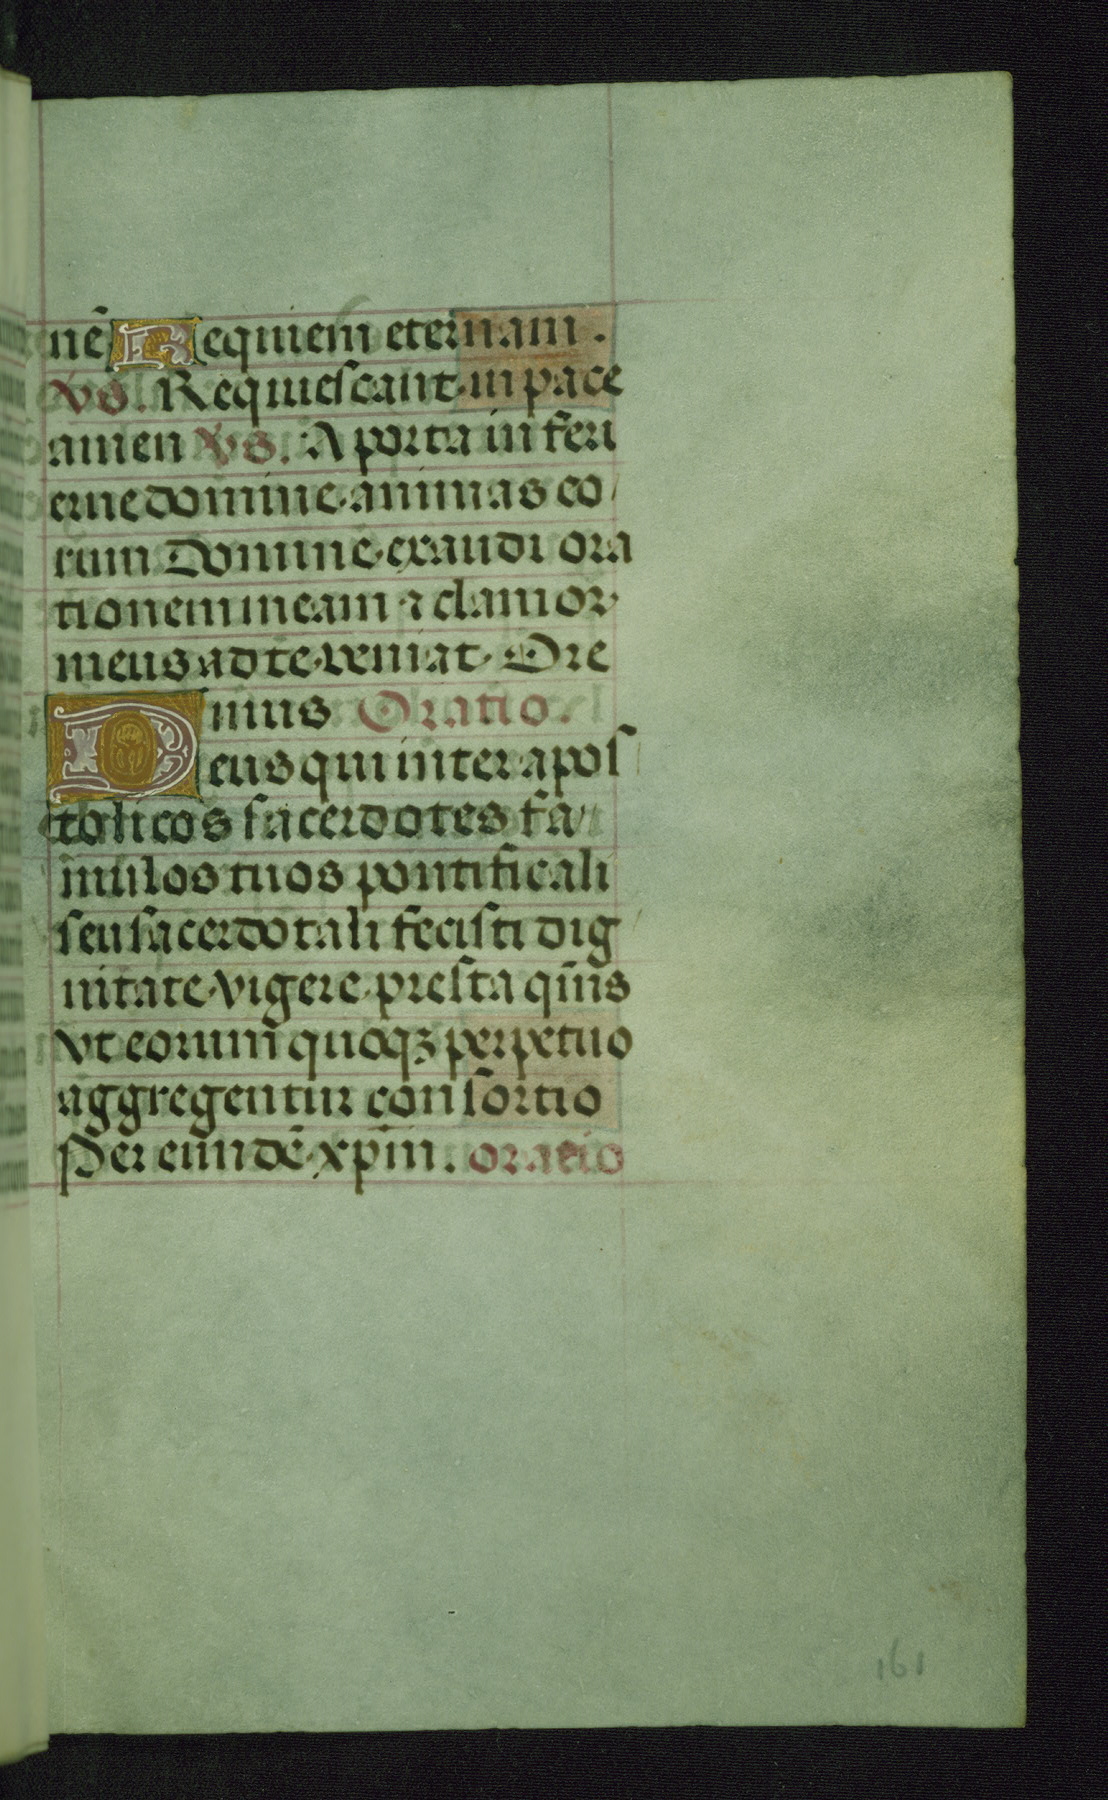 nē Requiem eternam.
Vs. Requiescant in pace
amen Vs. A porta inferi
erue domine animas eo/
rum Domine exaudi ora
tionem meam ⁊ clamor
meus ad te veniat. Ore
mus Oratio.
Deus qui inter apos
tolicos sacerdotes fa/
mulos tuos pontificali
seu sacerdotali fecisti dig
nitate vigere presta qm̄s
vt eorum quoqꝫ perpetuo
aggregentur consortio
Per eundē xpm̄. oratio
161